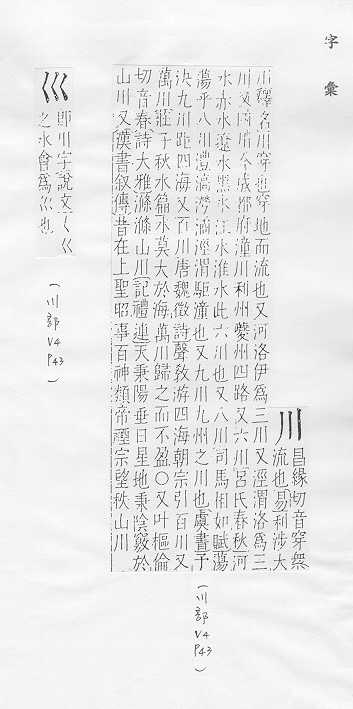 字彙
川
昌緣切音穿眾
流也易利涉大
川釋名川穿也穿地而流也又河洛伊為三川又涇渭洛為三
川又
今成都府潼川利州夔州四路又六川呂氏春秋河
水赤水遼水黑水江水淮水此六川也又八川司馬相如賦蕩
蕩乎八川灃滈澇潏涇渭
也又九川九州之川也虞書予
決九川距四海又百川唐魏徵詩聲教游四海朝宗引百川又
萬川莊子秋水篇水莫大於海萬川歸之而不盈○又叶樞倫
切音春詩大雅滌滌山川記禮運天秉陽垂日星地秉陰竅於
山川又漢書叙傳昔在上聖昭事百神類帝禋宗望秩山川
(川部
V4
P43)
巛
即川字說文
之水會為
也
(川部
V4
P43)